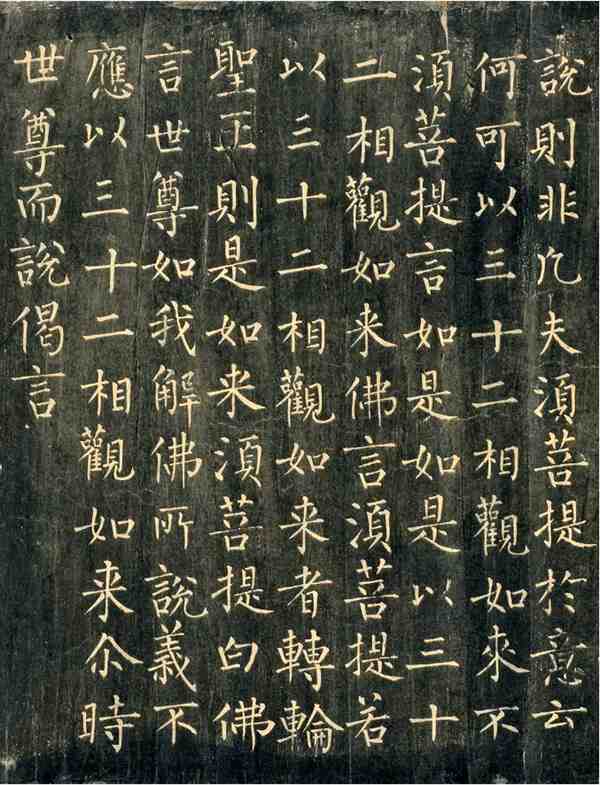 說則非凡夫須菩提於意云
何可以三十二相觀如來不
須菩提言如是如是以三十
二相觀如来佛言須菩提若
以三十二相觀如来者轉輪
聖王則是如来須菩提白佛
言世尊如我解佛所說義不
應以三十二相觀如来尒時
世尊而說偈言